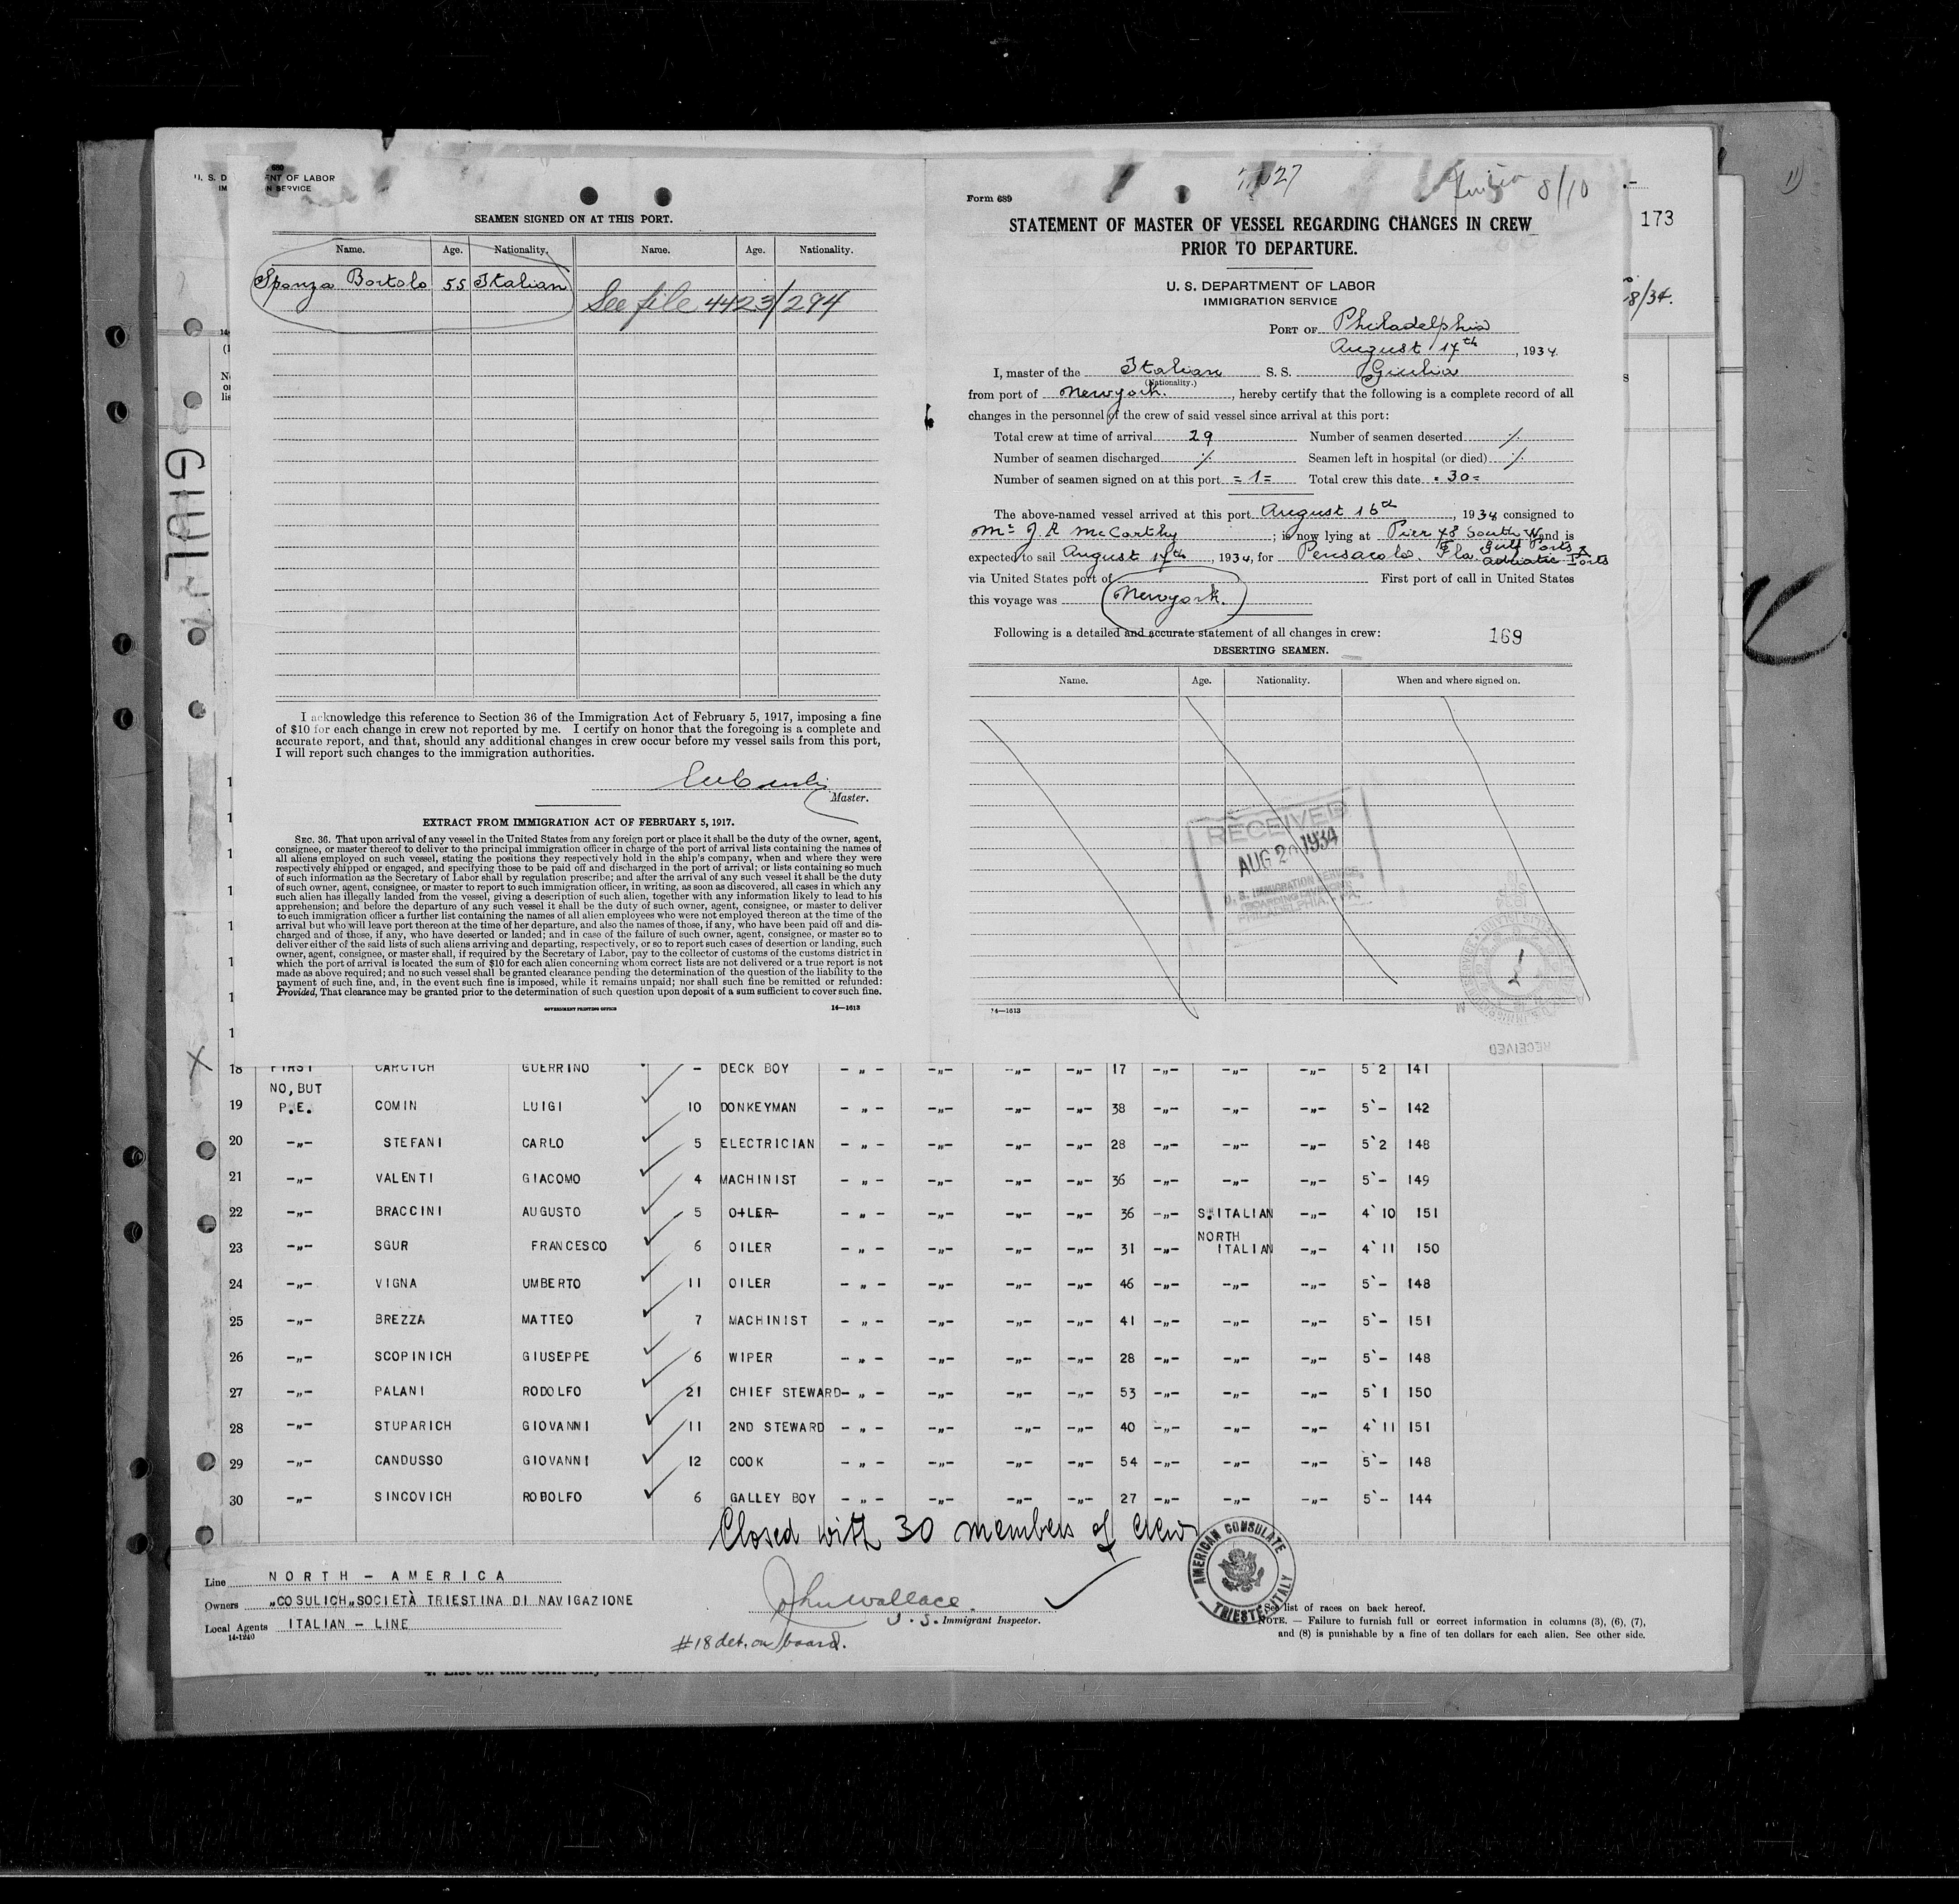 U. S. D ENT OF LABOR
IM N SERVICE
SEAMEN SIGNED ON AT THIS PORT.
Name. Age. Nationality. Name. Age. Nationality.
Sponza Bortolo 55 Italian
See file 4423/294
GIULIA
I acknowledge this reference to Section 36 of the Immigration Act of February 5, 1917, imposing a fine
of $10 for each change in crew not reported by me. I certify on honor that the foregoing is a complete and
accurate report, and that, should any additional changes in crew occur before my vessel sails from this port,
I will report such changes to the immigration authorities.
Master.
EXTRACT FROM IMMIGRATION ACT OF FEBRUARY 5, 1917.
SEC. 36. That upon arrival of any vessel in the United States from any foreign port or place it shall be the duty of the owner, agent,
consignee, or master thereof to deliver to the principal immigration officer in charge of the port of arrival lists containing the names of
all aliens employed on such vessel, stating the positions they respectively hold in the ship's company, when and where they were
respectively shipped or engaged, and specifying those to be paid off and discharged in the port of arrival; or lists containing so much
of such information as the Secretary of Labor shall by regulation prescribe; and after the arrival of any such vessel it shall be the duty
of such owner, agent, consignee, or master to report to such immigration officer, in writing, as soon as discovered, all cases in which any
such alien has illegally landed from the vessel, giving a description of such alien, together with any information likely to lead to his
apprehension; and before the departure of any such vessel it shall be the duty of such owner, agent, consignee, or master to deliver
to such immigration officer a further list containing the names of all alien employees who were not employed thereon at the time of the
arrival but who will leave port thereon at the time of her departure, and also the names of those, if any, who have been paid off and dis-
charged and of those, if any, who have deserted or landed; and in case of the failure of such owner, agent, consignee, or master so to
deliver either of the said lists of such aliens arriving and departing, respectively, or so to report such cases of desertion or landing, such
owner, agent, consignee, or master shall, if required by the Secretary of Labor, pay to the collector of customs of the customs district in
which the port of arrival is located the sum of $10 for each alien concerning whom correct lists are not delivered or a true report is not
made as above required; and no such vessel shall be granted clearance pending the determination of the question of the liability to the
payment of such fine, and, in the event such fine is imposed, while it remains unpaid; nor shall such fine be remitted or refunded:
Provided, That clearance may be granted prior to the determination of such question upon deposit of a sum sufficient to cover such fine.
GOVERNMENT PRINTING OFFICE 14—1613
8/10
Form 689
STATEMENT OF MASTER OF VESSEL REGARDING CHANGES IN CREW
PRIOR TO DEPARTURE.
173
U. S. DEPARTMENT OF LABOR
IMMIGRATION SERVICE
PORT OF Philadelphia
August 17th, 1934
I, master of the Italian S. S. Giulia
(Nationality.)
from port of Newyork., hereby certify that the following is a complete record of all
changes in the personnel of the crew of said vessel since arrival at this port:
Total crew at time of arrival 29 Number of seamen deserted %
Number of seamen discharged % Seamen left in hospital (or died) %
Number of seamen signed on at this port = 1 = Total crew this date = 30 =
The above-named vessel arrived at this port August 16th, 1934 consigned to
Mr J. A McCarthy; is now lying at Pier 78 South W and is
expected to sail August 17th, 1934, for Pensacola. Fla. Gulf Ports &
Adriatic Ports
via United States port of First port of call in United States
this voyage was Newyork.
Following is a detailed and accurate statement of all changes in crew: 169
DESERTING SEAMEN.
Name. Age. Nationality. When and where signed on.
RECEIVED
AUG 20 1934
U. S. IMMIGRATION SERVICE
PHILADELPHIA, PA.
RECEIVED
14—1613
18 FIRST CARCICH GUERRINO - DECK BOY - „ - -„- -„- -„- 17 -„- -„- -„- 5`2 141
NO, BUT
19 P.E. COMIN LUIGI 10 DONKEYMAN - „ - -„- -„- -„- 38 -„- -„- -„- 5`- 142
20 -„- STEFANI CARLO 5 ELECTRICIAN - „ - -„- -„- -„- 28 -„- -„- -„- 5`2 148
21 -„- VALENTI GIACOMO 4 MACHINIST - „ - -„- -„- -„- 36 -„- -„- -„- 5`- 149
22 -„- BRACCINI AUGUSTO 5 OILER - „ - -„- -„- -„- 36 -„- S.ITALIAN -„- 4`10 151
23 -„- SGUR FRANCESCO 6 OILER - „ - -„- -„- -„- 31 -„- NORTH ITALIAN -„- 4`11 150
24 -„- VIGNA UMBERTO 11 OILER - „ - -„- -„- -„- 46 -„- -„- -„- 5`- 148
25 -„- BREZZA MATTEO 7 MACHINIST - „ - -„- -„- -„- 41 -„- -„- -„- 5`- 151
26 -„- SCOPINICH GIUSEPPE 6 WIPER - „ - -„- -„- -„- 28 -„- -„- -„- 5`- 148
27 -„- PALANI RODOLFO 21 CHIEF STEWARD - „ - -„- -„- -„- 53 -„- -„- -„- 5`1 150
28 -„- STUPARICH GIOVANNI 11 2ND STEWARD - „ - -„- -„- -„- 40 -„- -„- -„- 4`11 151
29 -„- CANDUSSO GIOVANNI 12 COOK - „ - -„- -„- -„- 54 -„- -„- -„- 5`- 148
30 -„- SINCOVICH ROBOLFO 6 GALLEY BOY - „ - -„- -„- -„- 27 -„- -„- -„- 5`- 144
Closed with 30 members of crew
AMERICAN CONSULATE
TRIESTE, ITALY
Line NORTH - AMERICA
Owners „COSULICH„SOCIETÀ TRIESTINA DI NAVIGAZIONE
Local Agents ITALIAN - LINE
14-1240
John Wallace.
U. S. Immigrant Inspector.
#18 det. on board.
See list of races on back hereof.
NOTE. — Failure to furnish full or correct information in columns (3), (6), (7),
and (8) is punishable by a fine of ten dollars for each alien. See other side.